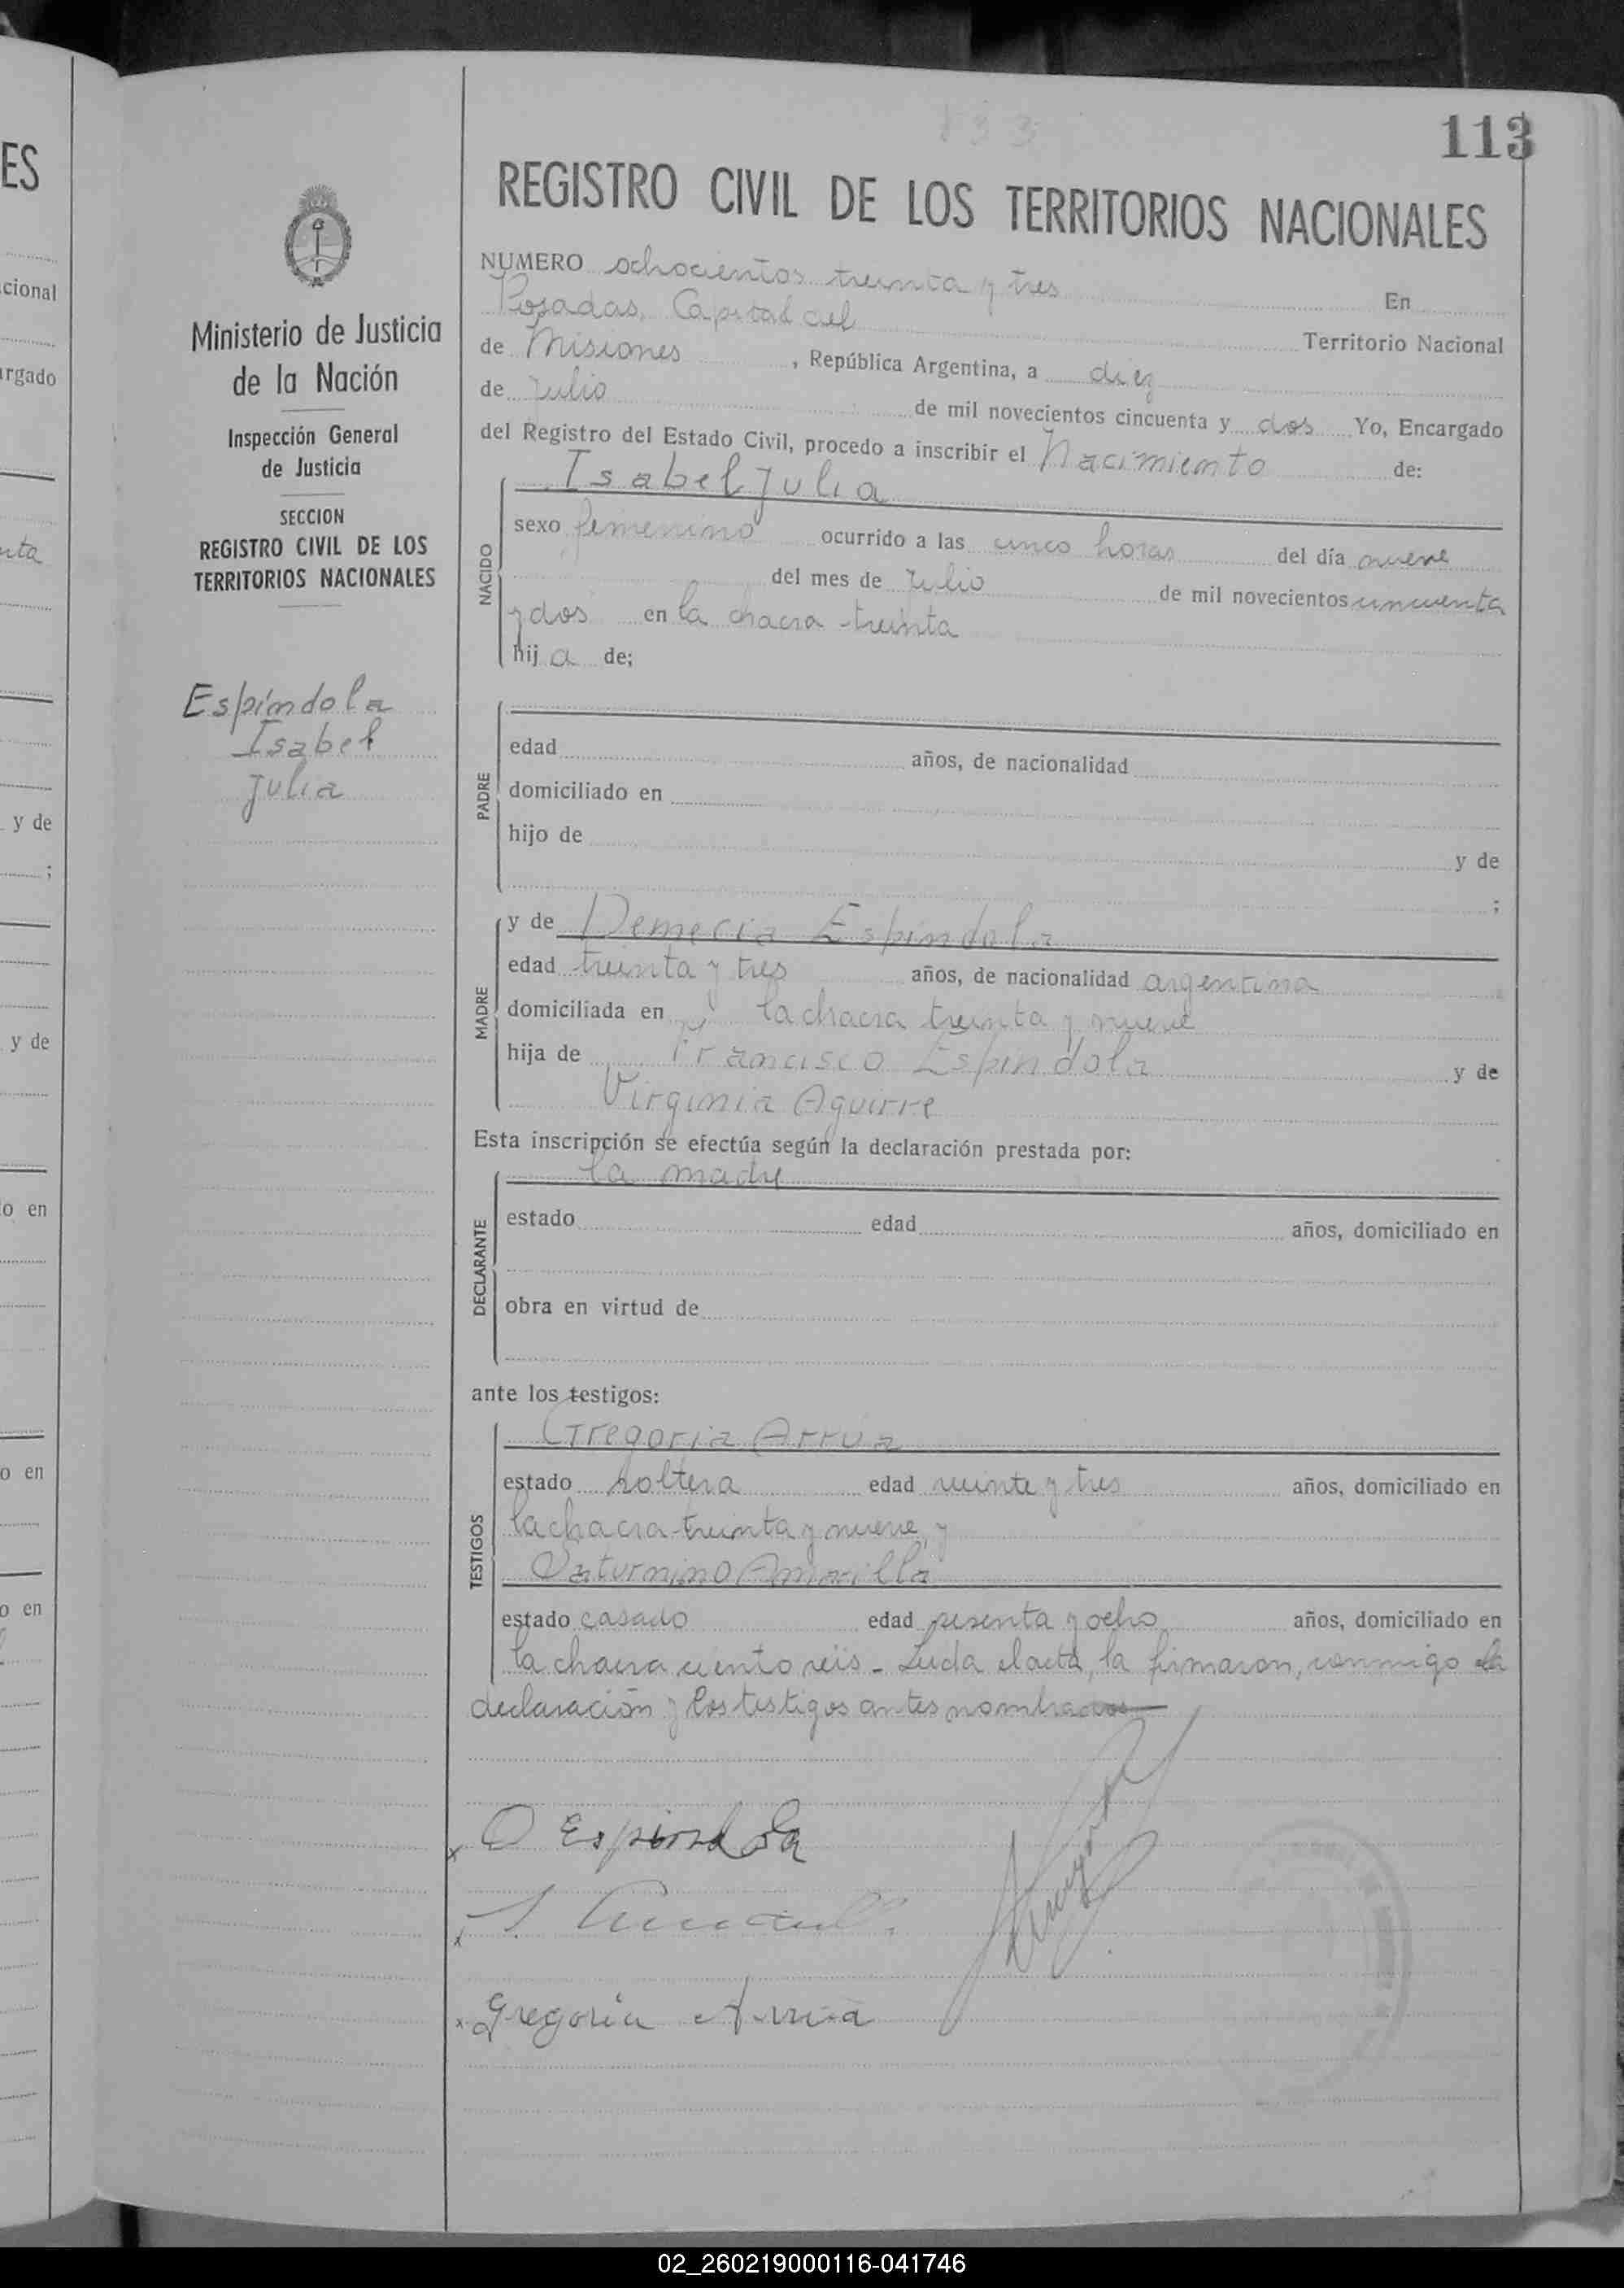 ES
cional
argado
nta
y de
;
y de
o en
o en
o en
833
113
Ministerio de Justicia
de la Nación
Inspección General
de Justicia
SECCION
REGISTRO CIVIL DE LOS
TERRITORIOS NACIONALES
Espíndola
Isabel
Julia
REGISTRO CIVIL DE LOS TERRITORIOS NACIONALES
NUMERO ochocientos treinta y tres En
Posadas, Capital del Territorio Nacional
de Misiones, República Argentina, a diez
de Julio de mil novecientos cincuenta y dos Yo, Encargado
del Registro del Estado Civil, procedo a inscribir el Nacimiento de:
NACIDO
Isabel Julia
sexo femenino ocurrido a las cinco horas del día nueve
del mes de Julio de mil novecientos cincuenta
y dos en la chacra treinta
hija de;
PADRE
edad años, de nacionalidad
domiciliado en
hijo de y de
;
MADRE
y de Demecia Espíndola
edad treinta y tres años, de nacionalidad argentina
domiciliada en la chacra treinta y nueve
hija de Francisco Espíndola y de
Virginia Aguirre
Esta inscripción se efectúa según la declaración prestada por:
DECLARANTE
la madre
estado edad años, domiciliado en
obra en virtud de
ante los testigos:
TESTIGOS
Gregoria Arrúa
estado soltera edad veinte y tres años, domiciliado en
la chacra treinta y nueve, y
Saturnino Amarilla
estado casado edad sesenta y ocho años, domiciliado en
la chacra ciento seis - Leida el acta, la firmaron, conmigo la
declaración y los testigos antes nombrados
x D Espindola
x S Amarilla
x Gregoria Arrua
02_260219000116-041746